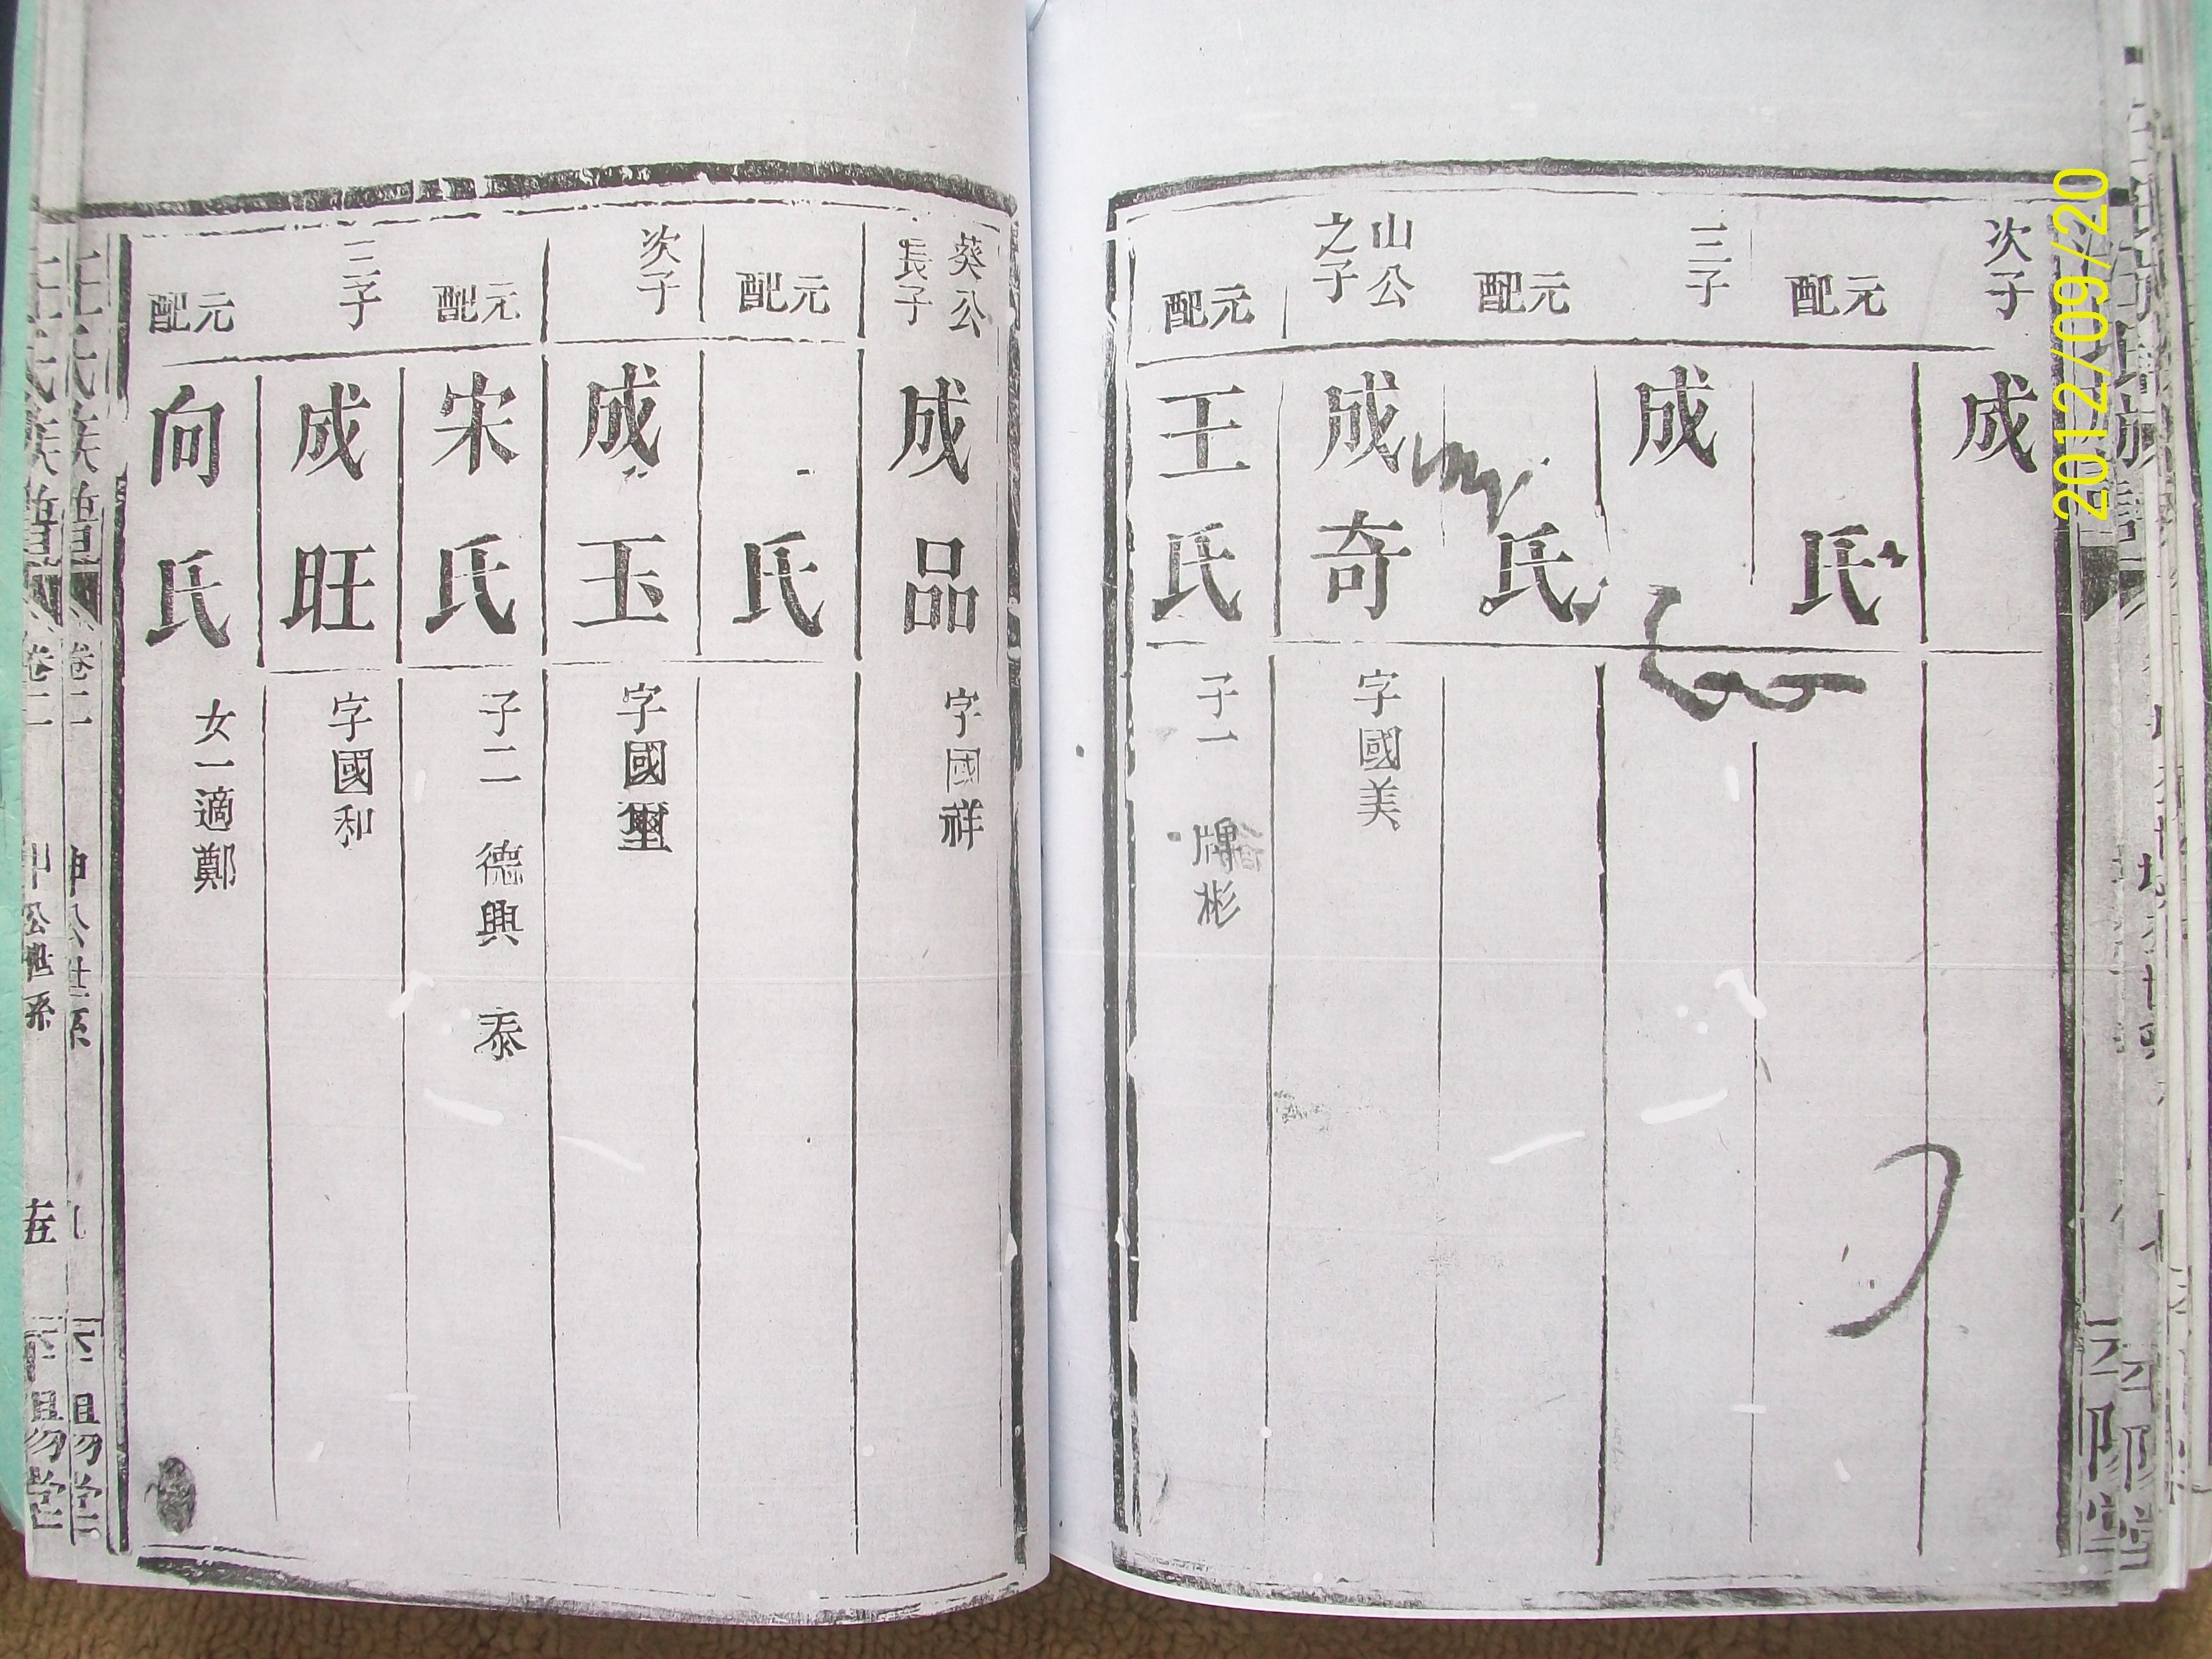 次子 成
元配 氏
三子 成
元配 氏
山公之子 成奇 字國美
元配 王氏 子一 彬
葵公長子 成品 字國祥
元配 氏
次子 成玉 字國璽
元配 宋氏 子二 德興 泰
三子 成旺 字國和
元配 向氏 女一適鄭
氏族譜 卷二 公世系
2012/09/20